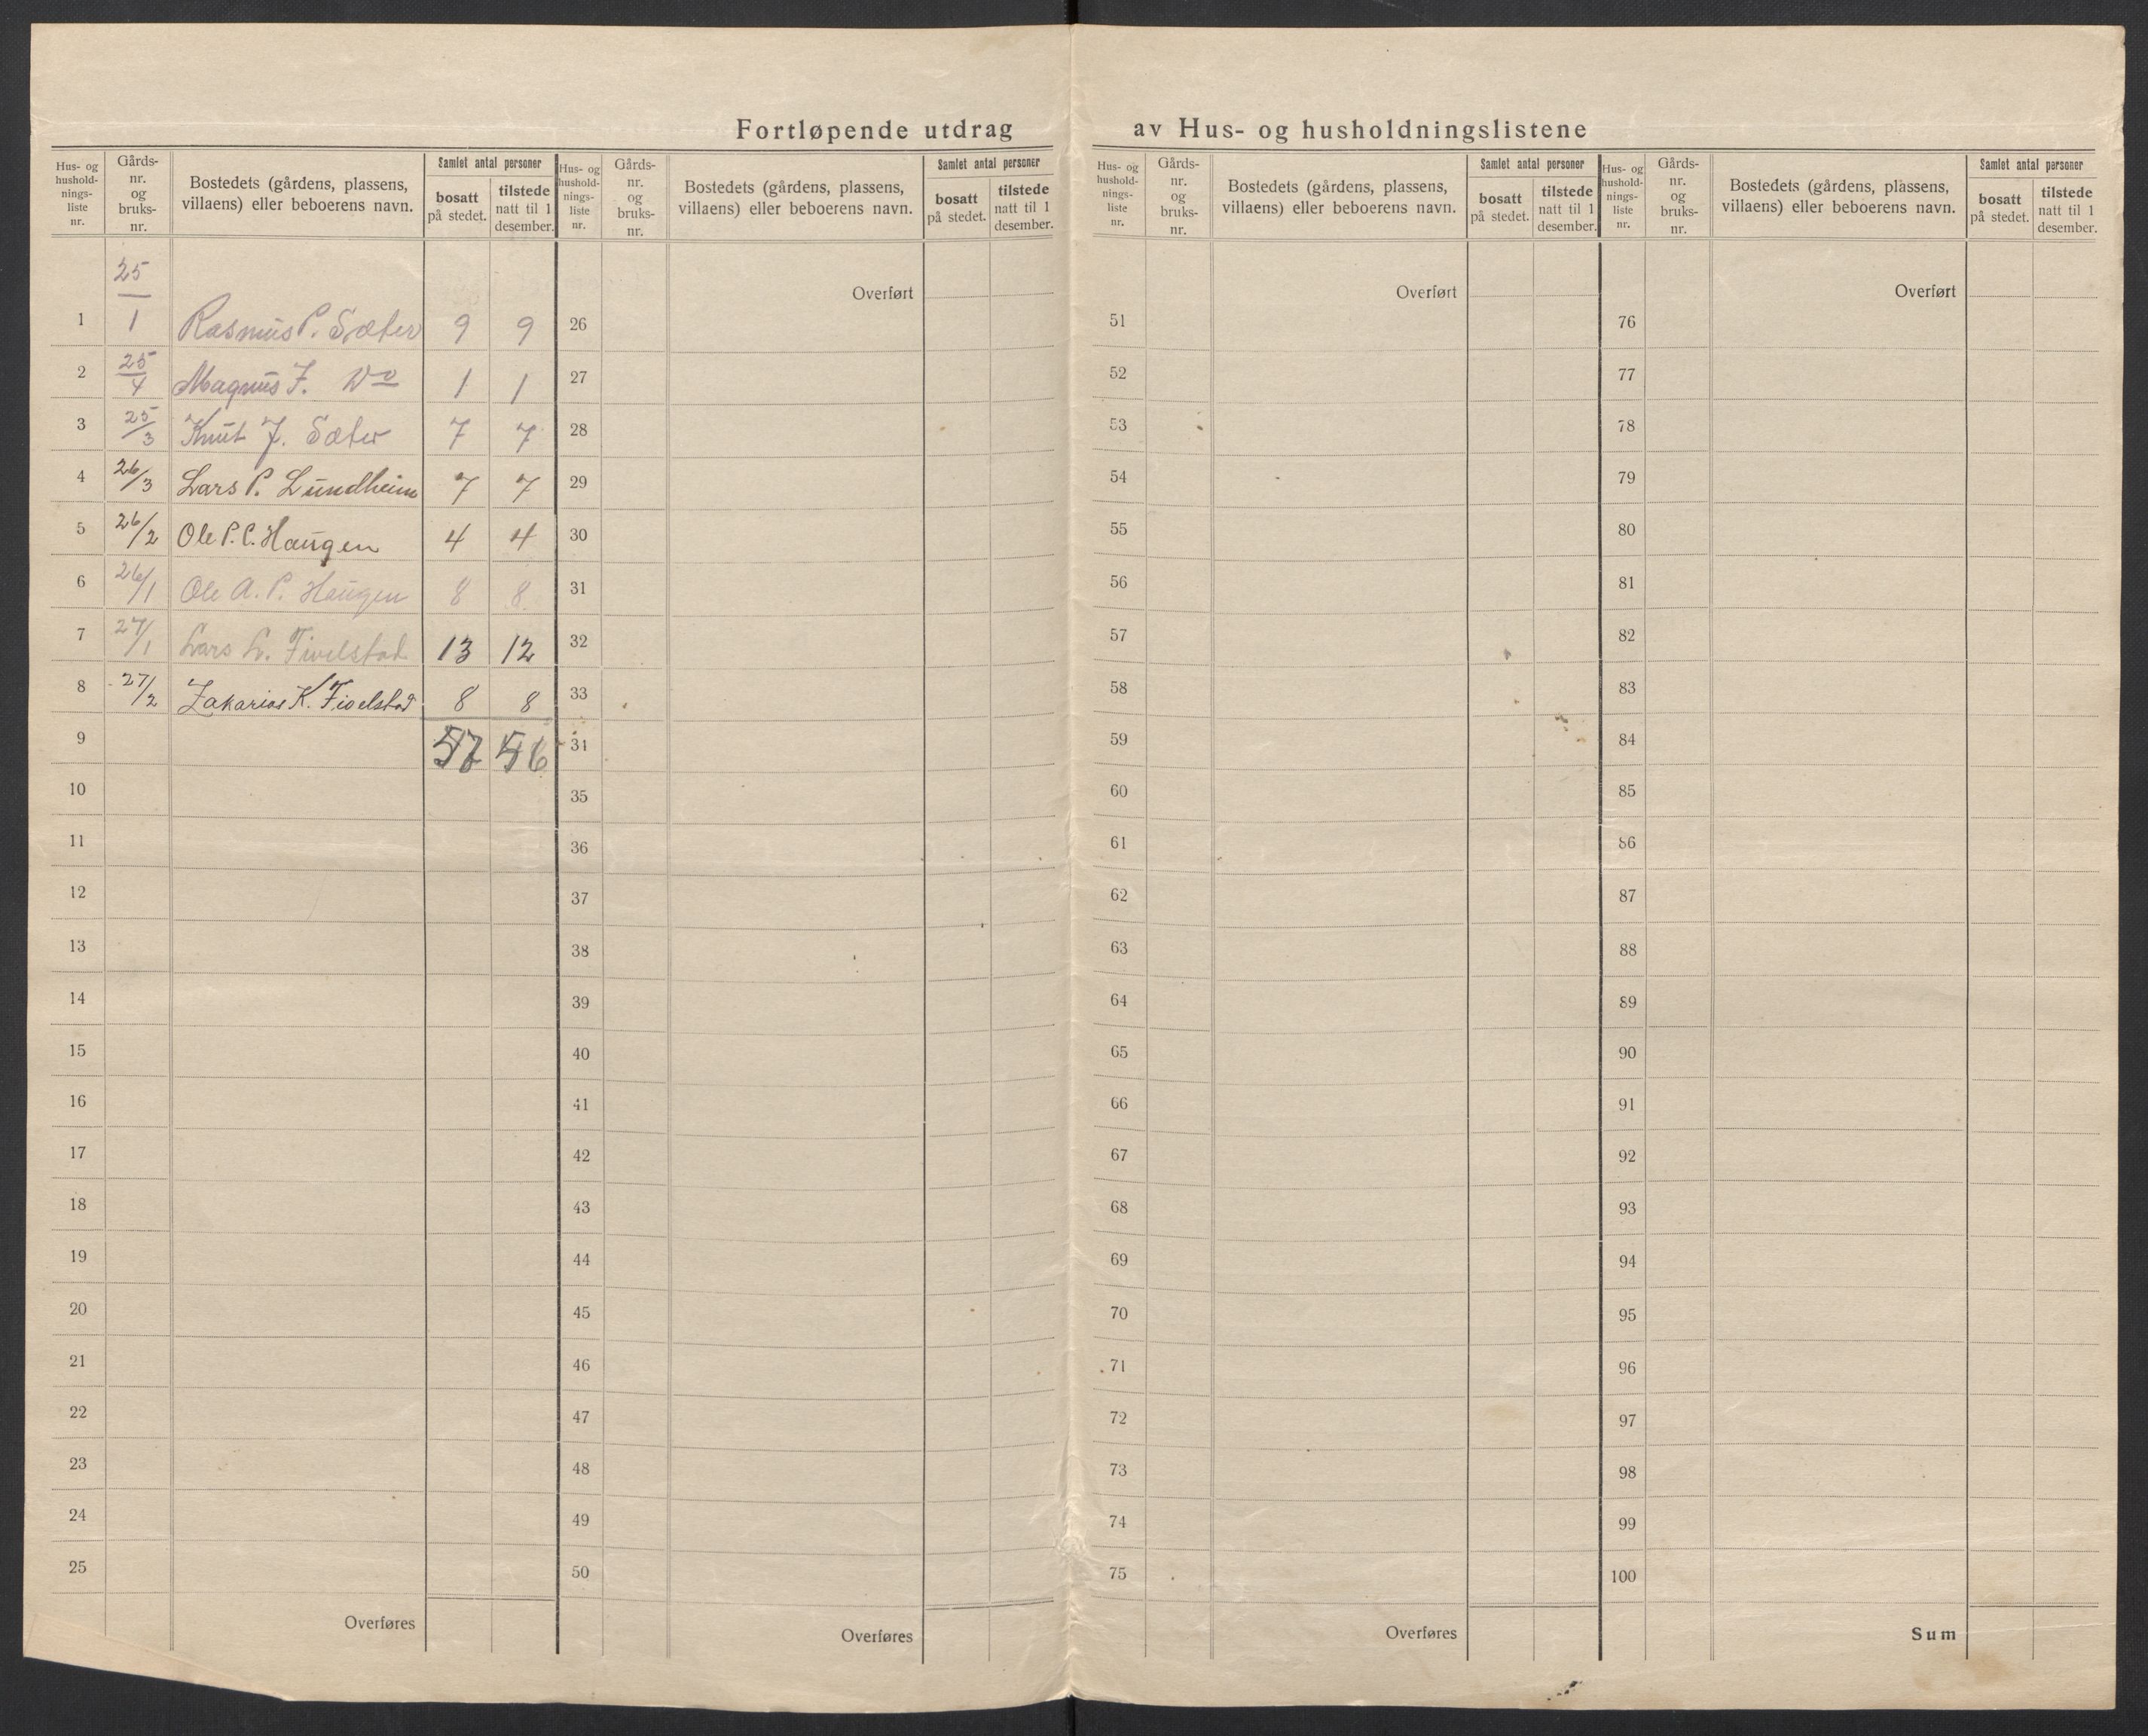 Fortløpende utdrag av Hus- og husholdningslistene
Hus- og husholdnings-liste nr. Gårds-nr. og bruks-nr. Bostedets (gårdens, plassens, villaens) eller beboerens navn. Samlet antal personer bosatt på stedet. tilstede natt til 1 desember.
1 25/1 Rasmus P. Sæter 9 9
2 25/4 Magnus J. Do 1 1
3 25/3 Knut J. Sæter 7 7
4 26/3 Lars P. Lundheim 7 7
5 26/2 Ole P. C. Haugen 4 4
6 26/1 Ole A. P. Haugen 8 8
7 27/1 Lars L. Fivelstad 13 12
8 27/2 Zakarias K. Fivelstad 8 8
9 57 56
10
11
12
13
14
15
16
17
18
19
20
21
22
23
24
25
Overføres
Hus- og husholdnings-liste nr. Gårds-nr. og bruks-nr. Bostedets (gårdens, plassens, villaens) eller beboerens navn. Samlet antal personer bosatt på stedet. tilstede natt til 1 desember.
Overført
26
27
28
29
30
31
32
33
34
35
36
37
38
39
40
41
42
43
44
45
46
47
48
49
50
Overføres
Hus- og husholdnings-liste nr. Gårds-nr. og bruks-nr. Bostedets (gårdens, plassens, villaens) eller beboerens navn. Samlet antal personer bosatt på stedet. tilstede natt til 1 desember.
Overført
51
52
53
54
55
56
57
58
59
60
61
62
63
64
65
66
67
68
69
70
71
72
73
74
75
Overføres
Hus- og husholdnings-liste nr. Gårds-nr. og bruks-nr. Bostedets (gårdens, plassens, villaens) eller beboerens navn. Samlet antal personer bosatt på stedet. tilstede natt til 1 desember.
Overført
76
77
78
79
80
81
82
83
84
85
86
87
88
89
90
91
92
93
94
95
96
97
98
99
100
Sum